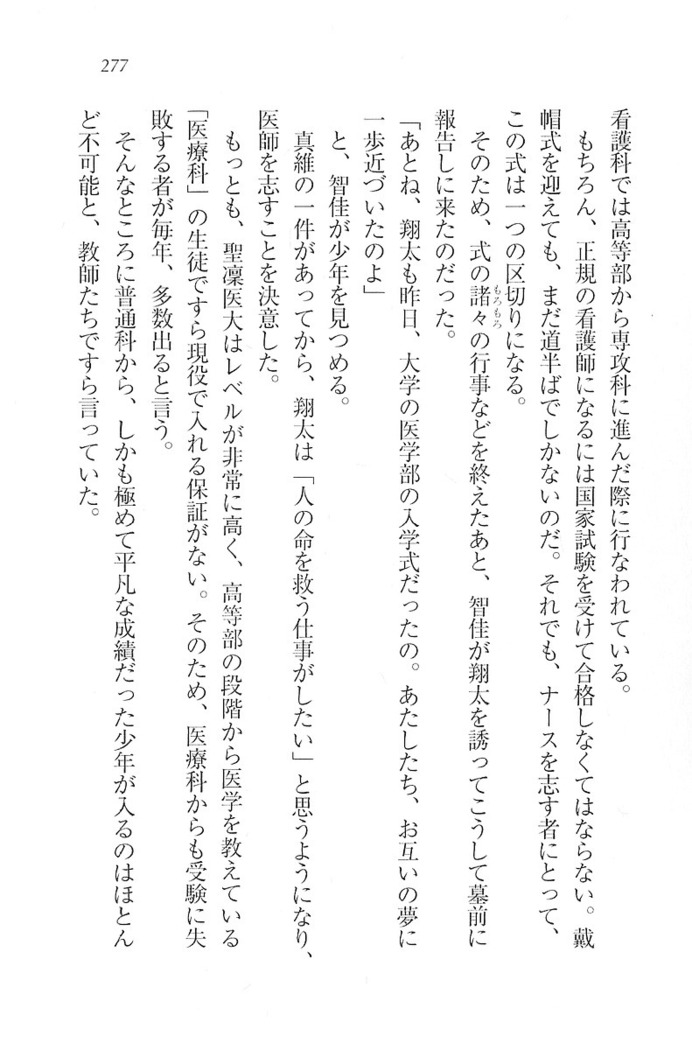 277
看護科では高等部から専攻科に進んだ際に行なわれている。
もちろん、正規の看護師になるには国家試験を受けて合格しなくてはならない。戴
帽式を迎えても、まだ道半ばでしかないのだ。それでも、ナースを志す者にとって、
この式は一つの区切りになる。
そのため、式の諸々の行事などを終えたあと、智佳が翔太を誘ってこうして墓前に
もろもろ
報告しに来たのだった。
「あとね、翔太も昨日、大学の医学部の入学式だったの。あたしたち、お互いの夢に
一歩近づいたのよ」
と、智佳が少年を見つめる。
真維の一件があってから、翔太は「人の命を救う仕事がしたい」と思うようになり、
医師を志すことを決意した。
もっとも、聖凜医大はレベルが非常に高く、高等部の段階から医学を教えている
「医療科」の生徒ですら現役で入れる保証がない。そのため、医療科からも受験に失
敗する者が毎年、多数出ると言う。
そんなところに普通科から、しかも極めて平凡な成績だった少年が入るのはほとん
ど不可能と、教師たちですら言っていた。